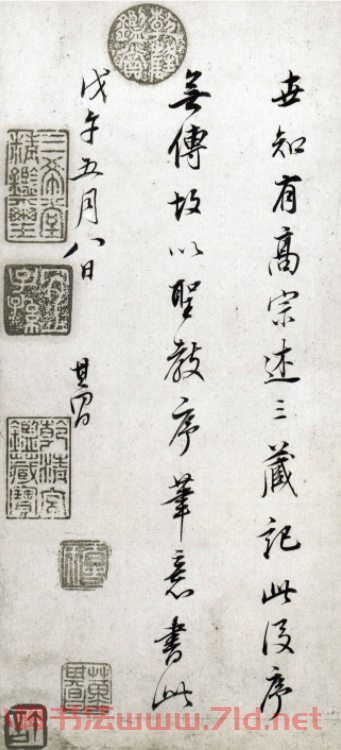 世知有高宗述三藏記此後序
無傳故以聖教序筆意書此
戊午五月八日 其昌
乾隆鑑賞
三希堂精鑑璽
宜子孫
乾清宮鑑藏寶
书法www.7ld.net